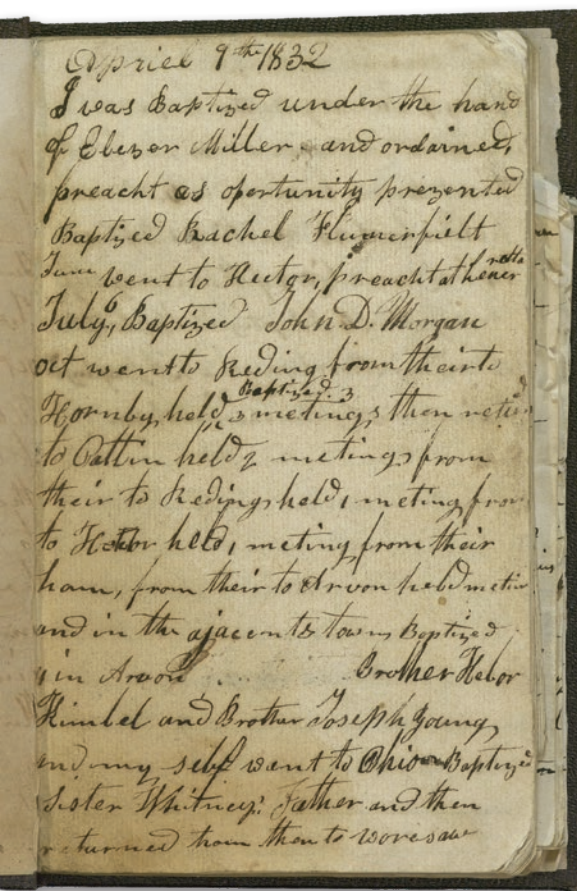 Apriel 9th 1832
I was Baptized under the hand
of Ebezer Miller and ordained,
preacht as oportunity prezented
Baptized Rachel Flumerfielt
June went to Hector, preacht at
July 6, Baptized John D. Morgan
oct went to Reding from their to
Baptized 3
Hornby, held 3 metings then
to Cattin held 2 metings from
their to Redings held 1 meting from
to Hector held 1 meting from their
ham, from their to Arvon held
and in the ajacents towns Baptized
in Arvon Brother Hebor
Kimbel and Brother Joseph Young
and my self went to Ohio Baptized
Sister Whitneys Father and then
returned from then to